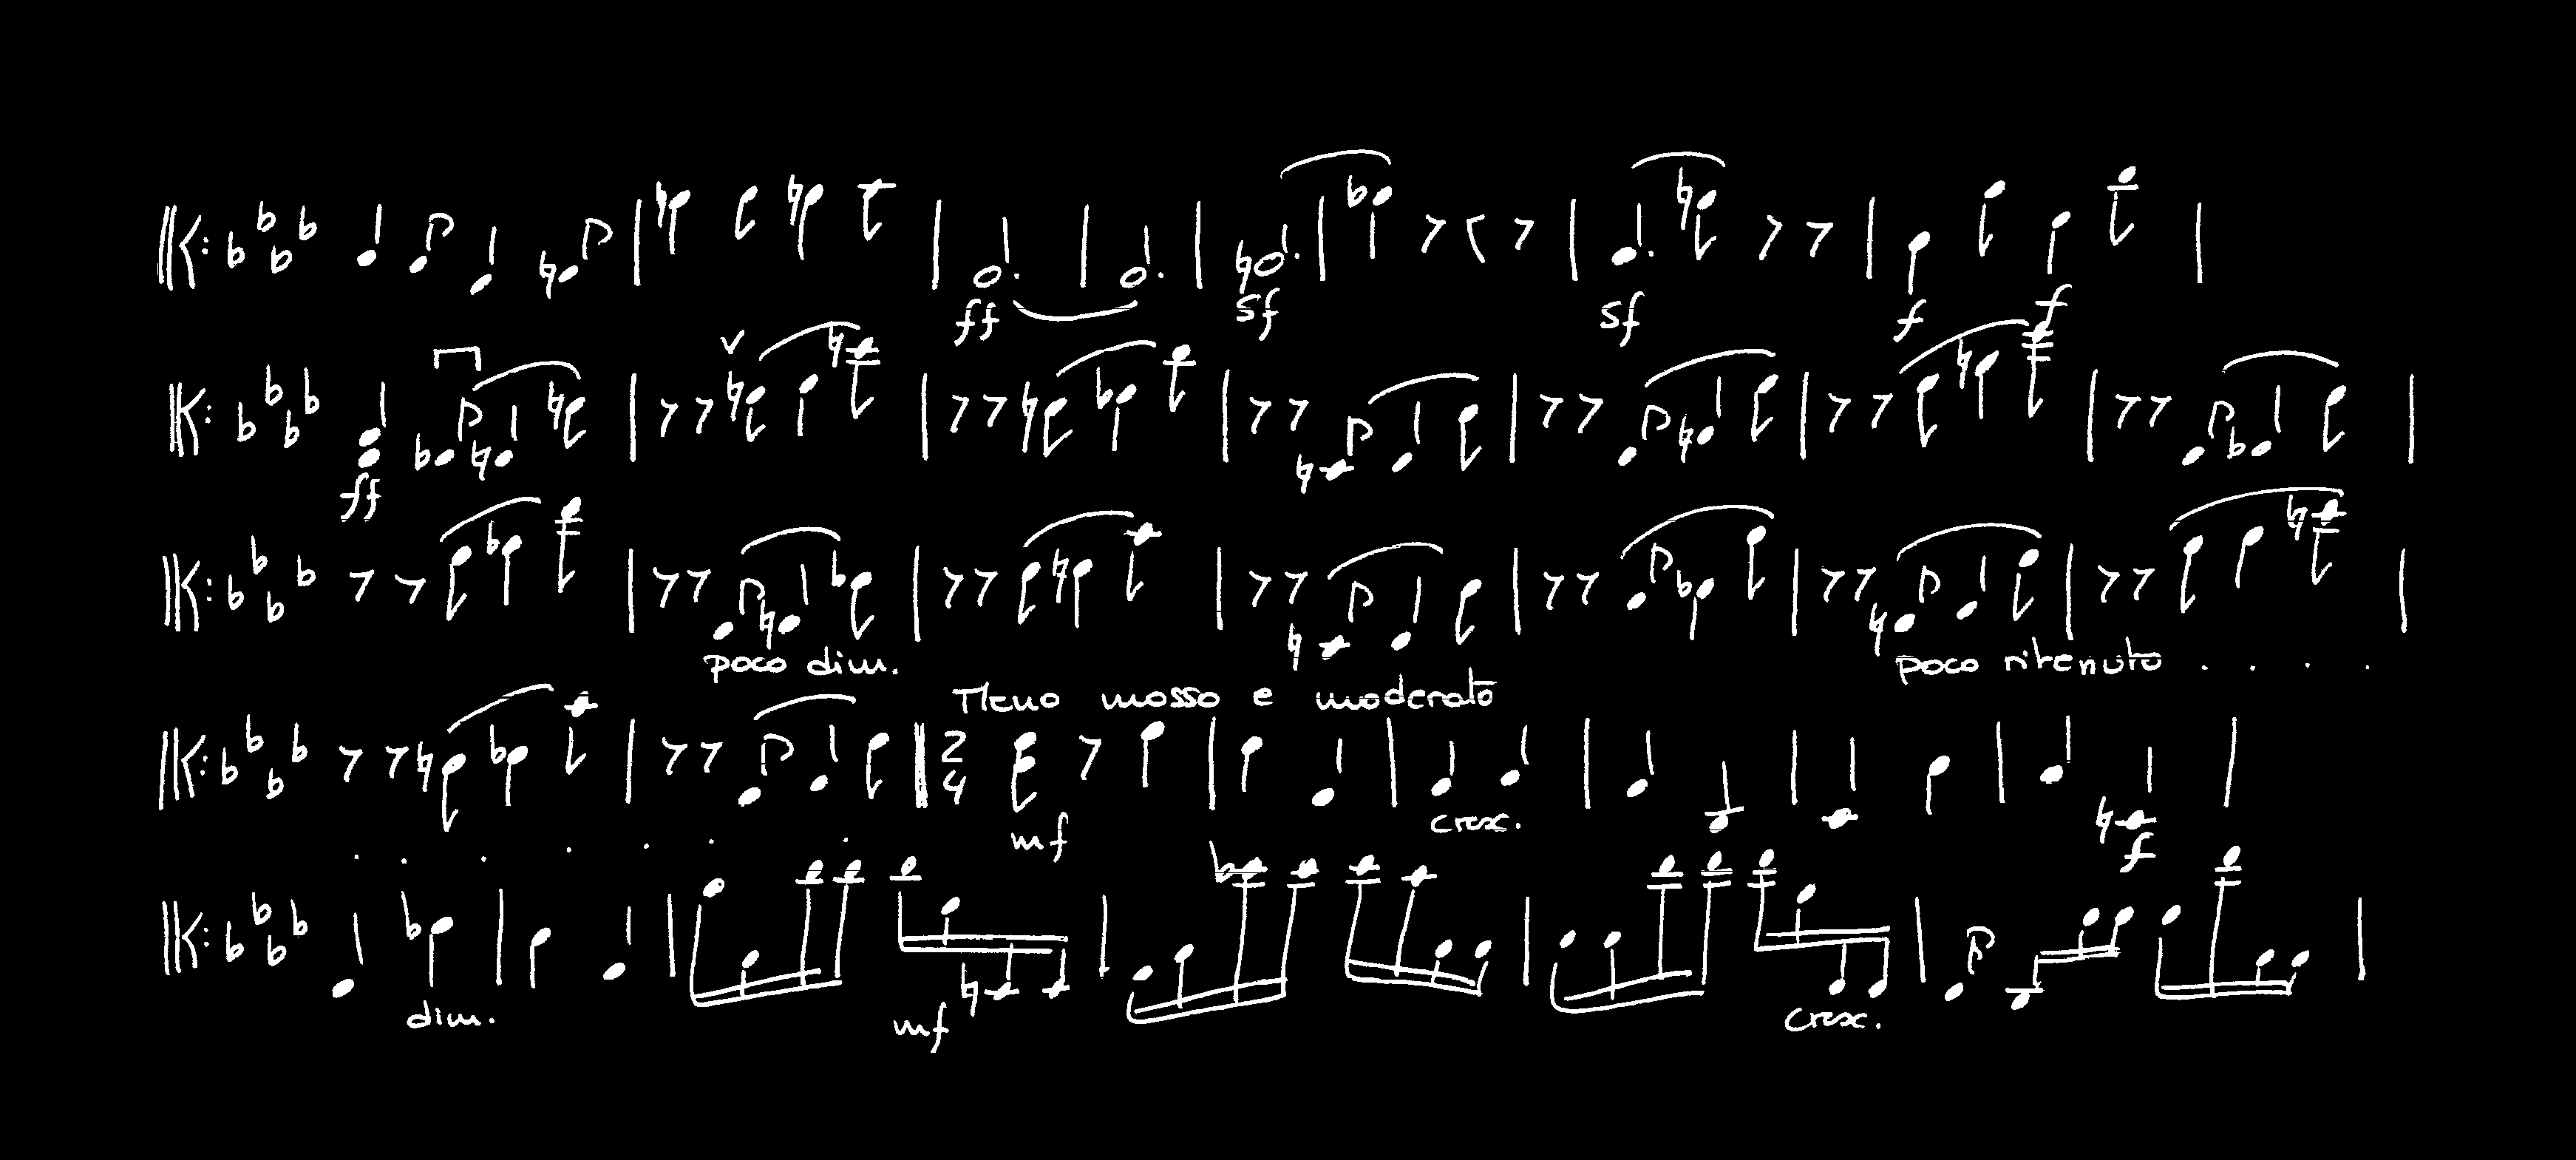 ff sf sf f f
ff
poco dim. poco ritenuto . . . .
Meno mosso e moderato
2
4
mf cresc. f
. . . . . . .
dim. mf cresc.